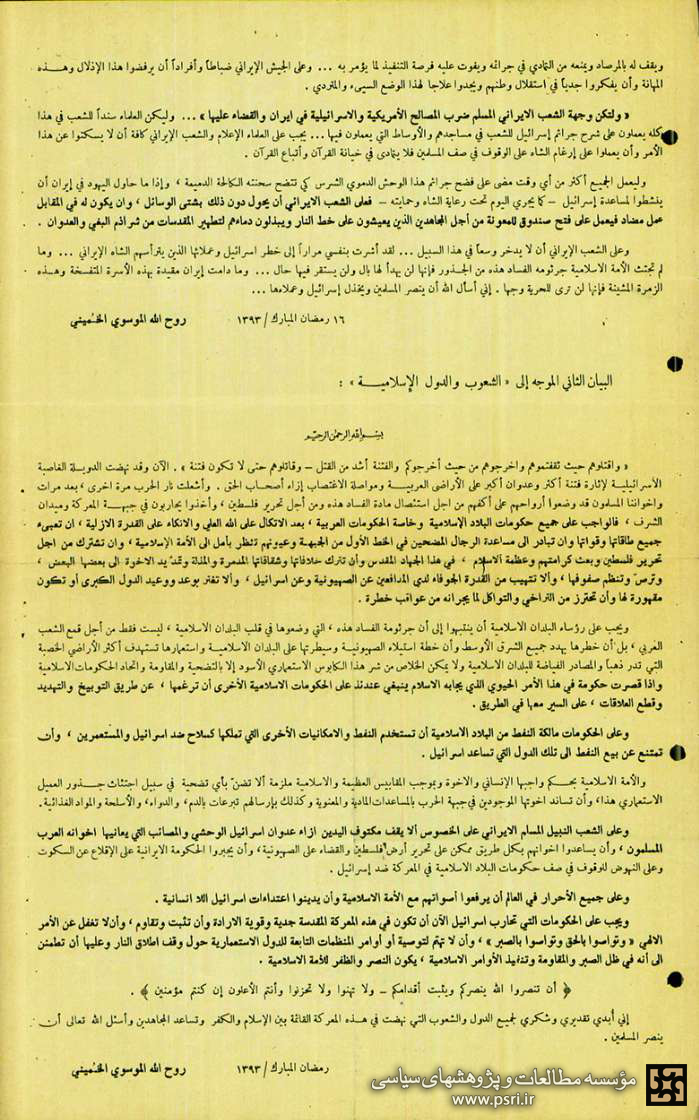 ويقف له بالمرصاد ويمنعه من التمادي في جرائمه ويفوت عليه فرصة التنفيذ لما يؤمر به ... وعلى الجيش الإيراني ضباطاً وأفراداً أن يرفضوا هذا الإذلال وهـذه
المهانة وأن يفكروا جدياً في استقلال وطنهم ويجدوا علاجا لهذا الوضع السيىء والمتردي .
« ولتكن وجهة الشعب الايراني المسلم ضرب المصالح الأمريكية والاسرائيلية في ايران والقضاء عليها » ... وليكن العلماء سنداً للشعب في هذا
كله يعملون على شرح جرائم إسرائيل للشعب في مساجدهم والأوساط التي يعملون فيها ... يجب على العلماء الإعلام والشعب الإيراني كافة أن لا يسكتوا عن هذا
الأمر وأن يعملوا على إرغام الشاه على الوقوف في صف المسلمين فلا يتمادى في خيانة القرآن وأتباع القرآن .
وليعمل الجميع أكثر من أي وقت مضى على فضح جرائم هذا الوحش الدموي الشرس كي تتضح سحنته الكالحة الدميمة ، وإذا ما حاول اليهود في إيران أن
ينشطوا لمساعدة إسرائيل – كما يجري اليوم تحت رعاية الشاه وحمايته – فعلى الشعب الايراني أن يحول دون ذلك بشتى الوسائل ، وان يكون له في المقابل
عمل مضاد فيعمل على فتح صندوق للمعونة من أجل المجاهدين الذين يعيشون على خط النار ويبذلون دماءهم لتطهير المقدسات من شراذم البغي والعدوان .
وعلى الشعب الإيراني أن لا يدخر وسعاً في هذا السبيل ... لقد أشرت بنفسي مراراً إلى خطر اسرائيل وعملائها الذين يترأسهم الشاه الإيراني ... وما
لم تجتث الأمة الاسلامية جرثومه الفساد هذه من الجذور فإنها لن يهدأ لها بال ولن يستقر فيها حال ... وما دامت إيران مقيدة بهذه الأسرة المتفسخة وهـذه
الزمرة المشينة فإنها لن ترى للحرية وجها . إني أسأل الله أن ينصر المسلمين ويخذل إسرائيل وعملاءها ...
١٦ رمضان المبارك / ١٣٩٣ روح الله الموسوي الخميني
البيان الثاني الموجه إلى « الشعوب والدول الإسلاميـــة » :
بسم الله الرحمن الرحيم
« واقتلوهم حيث ثقفتموهم واخرجوهم من حيث أخرجوكم والفتنة أشد من القتل – وقاتلوهم حتى لا تكون فتنة » . الآن وقد نهضت الدويـلة الغاصبة
الأسرائيلية لإثارة فتنة أكثر وعدوان أكبر على الأراضي العربيـــة ومواصلة الاغتصاب إزاء أصحاب الحق . وأشعلت نار الحرب مرة اخرى ، بعد مرات
واخواننا المسلمون قد وضعوا أرواحهم على أكفهم من اجل استئصال مادة الفساد هذه ومن أجل تحرير فلسطين ، وأخذوا يحاربون في جبهـة المعركة وميدان
الشرف ، فالواجب على جميع حكومات البلاد الإسلامية وخاصة الحكومات العربية ، بعد الاتكال على الله العلي والاتكاء على القدرة الازلية ، ان تعبىء
جميع طاقاتها وقواتها وان تبادر الى مساعدة الرجال المضحين في الخط الأول من الجبهـة وعيونهم تنظر بأمل الى الأمة الإسلامية ، وان تشترك من اجل
تحرير فلسطين وبعث كرامتهم وعظمة الاسلام ، في هذا الجهاد المقدس وأن تترك خلافاتها وشقاقاتها المدمرة و المذلة وتمد يد الاخوة الى بعضها البعض ،
وترص وتنظم صفوفها ، وألا تتهيب من القدرة الجوفاء لدى المدافعين عن الصهيونية وعن اسرائيل ، وألا تغتر بوعد ووعيد الدول الكبرى أو تكون
مقهورة لها وأن تحترز من التراخي والتواكل لما يجرانه من عواقب خطرة .
ويجب على رؤساء البلدان الاسلامية أن ينتبهوا إلى أن جرثومة الفساد هذه ، التي وضعوها في قلب البلدان الاسلامية ، ليست فقط من أجل قمع الشعب
العربي ، بل أن خطرها يهدد جميع الشرق الأوسط وأن خطة استيلاء الصهيونيـة وسيطرتها على البلدان الاسلاميـة واستعمارها تستهدف أكثر الأراضي الخصبة
التي تدر ذهباً والمصادر الفياضة للبلدان الاسلامية ولا يمكن الخلاص من شر هذا الكابوس الاستعماري الأسود إلا بالتضحية والمقاومة واتحاد الحكومات الاسلامية
واذا قصرت حكومة في هذا الأمر الحيوي الذي يجابه الاسلام ينبغي عندئذ على الحكومات الاسلامية الأخرى أن ترغمها ، عن طريق التوبيخ والتهديد
وقطع العلاقات ، على السير معها في الطريق .
وعلى الحكومات مالكة النفط من البلاد الاسلامية أن تستخدم النفط والامكانيات الأخرى التي تملكها كسلاح ضد اسرائيل والمستعمرين ، وأن
تمتنع عن بيع النفط الى تلك الدول التي تساعد اسرائيل .
والأمة الاسلامية بحـكـم واجبها الإنساني والاخوة وبموجب المقاييس العظيمة والاسلامية ملزمة ألا تضنّ بأي تضحية في سبيل اجتثاث جـذور العميل
الاستعماري هذا، وأن تساند اخوتها الموجودين في جبهة الحرب بالمساعدات المادية والمعنوية وكذلك بإرسالهم تبرعات بالدم، والدواء، والأسلحة والمواد الغذائية.
وعلى الشعب النبيل المسلم الايراني على الخصوص ألا يقف مكتوف اليدين ازاء عدوان اسرائيل الوحشي والمصائب التي يعانيها اخوانه العرب
المسلمون ، وأن يساعدوا اخوانهم بكل طريق ممكن على تحرير أرض فلسطين والقضاء على الصهيونية، وأن يجبروا الحكومة الايرانية على الإقلاع عن السكوت
وعلى النهوض للوقوف في صف حكومات البلاد الاسلامية في المعركة ضد إسرائيل .
وعلى جميع الأحرار في العالم أن يرفعوا أصواتهم مع الأمة الاسلامية وأن يدينوا اعتداءات اسرائيل اللا انسانية .
ويجب على الحكومات التي تحارب اسرائيل الآن أن تكون في هذه المعركة المقدسة جدية وقوية الارادة وأن تثبت وتقاوم ، وأن لا تغفل عن الأمر
الالهي « وتواصوا بالحق وتواصوا بالصبر » ، وأن لا تهتم لتوصية أو أوامر المنظمات التابعة للدول الاستعمارية حول وقف اطلاق النار وعليها أن تطمئن
الى أنه في ظل الصبر والمقاومة وتنفيذ الأوامر الاسلامية ، يكون النصر والظفر للأمة الاسلامية .
﴿ أن تنصروا الله ينصركم ويثبت أقدامكم – ولا تهنوا ولا تحزنوا وأنتم الأعلون إن كنتم مؤمنين ﴾ .
إني أبدي تقديري وشكري لجميع الدول والشعوب التي نهضت في هـذه المعركة القائمة بين الإسلام والكفر وتساعد المجاهدين وأسئل الله تعالى أن
ينصر المسلمين .
رمضان المبارك / ١٣٩٣ روح الله الموسوي الخميني
مؤسسه مطالعات و پژوهشهای سیاسی
www.psri.ir